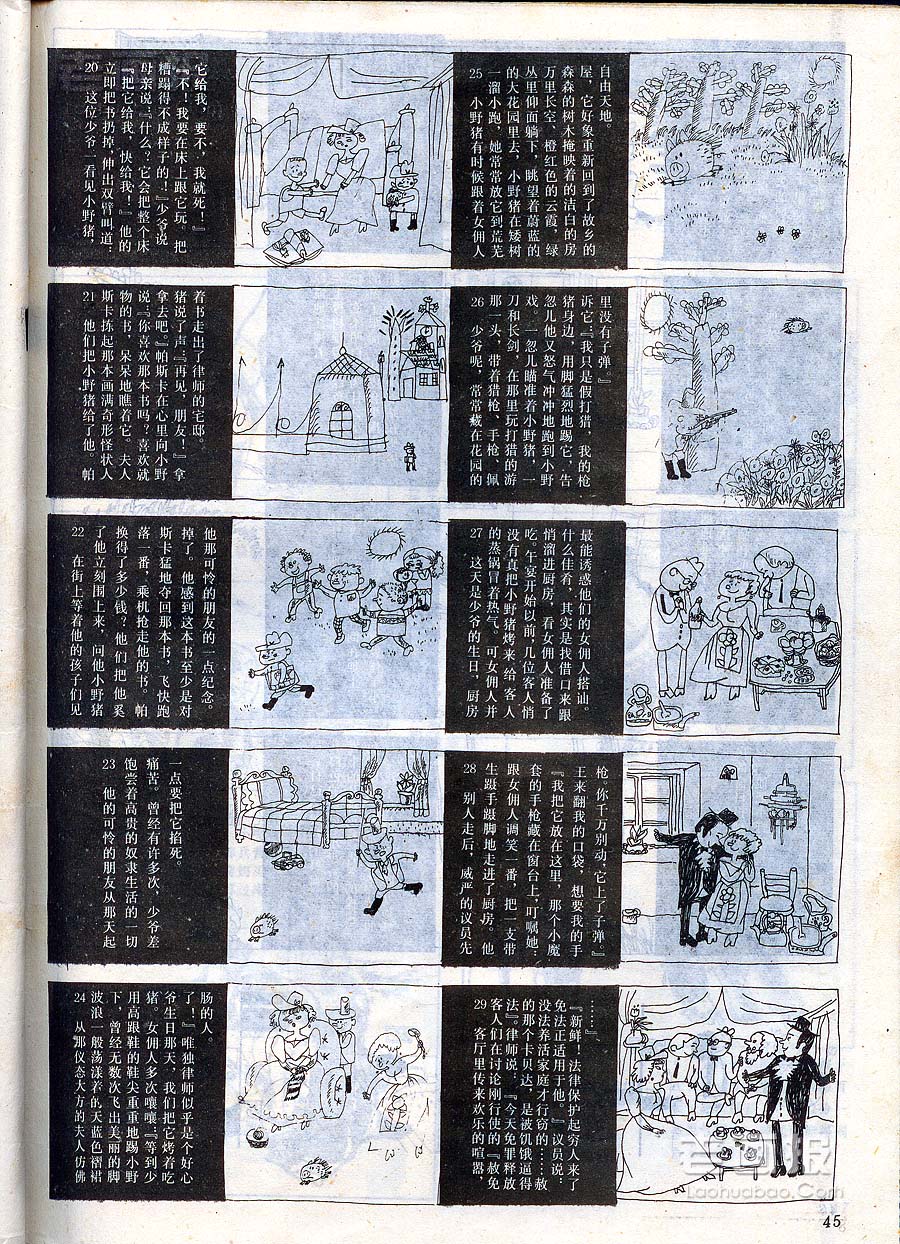 20 这位少爷一看见小野猪，
立即把书扔掉，伸出双臂叫道：
『把它给我，快给我！』他的
母亲说『什么？它会把整个床
糟蹋得不成样子的！』少爷说
『不！我要在床上跟它玩。把
它给我，要不，我就死！』
21 他们把小野猪给了他。帕
斯卡拣起那本画满奇形怪状人
物的书，呆呆地瞧着它。夫人
说『你喜欢那本书吗？喜欢就
拿去吧。』帕斯卡在心里向小野
猪说了声：『再见，朋友！』拿
着书走出了律师的宅邸。
22 在街上等着他的孩子们见
了他立刻围上来，问他小野猪
换得了多少钱？他们把他奚
落一番，乘机抢走他的书。帕
斯卡猛地夺回那本书，飞快跑
掉了。他感到这本书至少是对
他那可怜的朋友的一点纪念。
23 他的可怜的朋友从那天起
饱尝着高贵的奴隶生活的一切
痛苦。曾经有许多次，少爷差
一点要把它掐死。
24 从那仪态大方的夫人仿佛
波浪一般荡漾着的天蓝色褶裙
下，曾经无数次飞出美丽的脚
用高跟鞋的鞋尖重重地踢小野
猪。女佣人多次嚷嚷『等到少
爷生日那天，我们把它烤着吃
了！』唯独律师似乎是个好心
肠的人。
25 小野猪有时候跟着女佣人
一溜小跑，她常常放它到荒芜
的大花园里去，小野猪在矮树
丛里仰面躺下，眺望着蔚蓝的
万里长空、橙红色的云霞，绿
森森的树木掩映着的洁白的房
屋，它好象重新回到了故乡的
自由天地。
26 少爷呢，常常藏在花园的
那一头，带着猎枪、手枪、佩
刀和长剑，在那里玩打猎的游
戏。一忽儿瞄准着小野猪，一
忽儿他又怒气冲冲地跑到小野
猪身边，用脚猛烈地踢它，告
诉它：『我只是假打猎，我的枪
里没有子弹。』
27 这天是少爷的生日，厨房
的蒸锅冒着热气。可女佣人并
没有真把小野猪烤来给客人
吃。午宴开始以前，几位客人悄
悄溜进厨房，看女佣人准备了
什么佳肴，其实是找借口来跟
最能诱惑他们的女佣人搭讪。
28 别人走后，威严的议员先
生蹑手蹑脚地走进了厨房。他
跟女佣人调笑一番，把一支带
套的手枪藏在窗台上，叮嘱她：
『我把它放在这里，那个小魔
王来翻我的口袋，想要我的手
枪，你千万别动，它上了子弹。』
29 客厅里传来欢乐的喧嚣
客人们在讨论刚行使的『赦免
法』。律师说：『今天免罪释放
的那个卡贝达，是被饥饿逼得
没法养活家庭才行窃的……赦
免法正适用于他。』议员说：
『新鲜！法律保护起穷人来了
……』
老画报
Laohuabao.Com
45